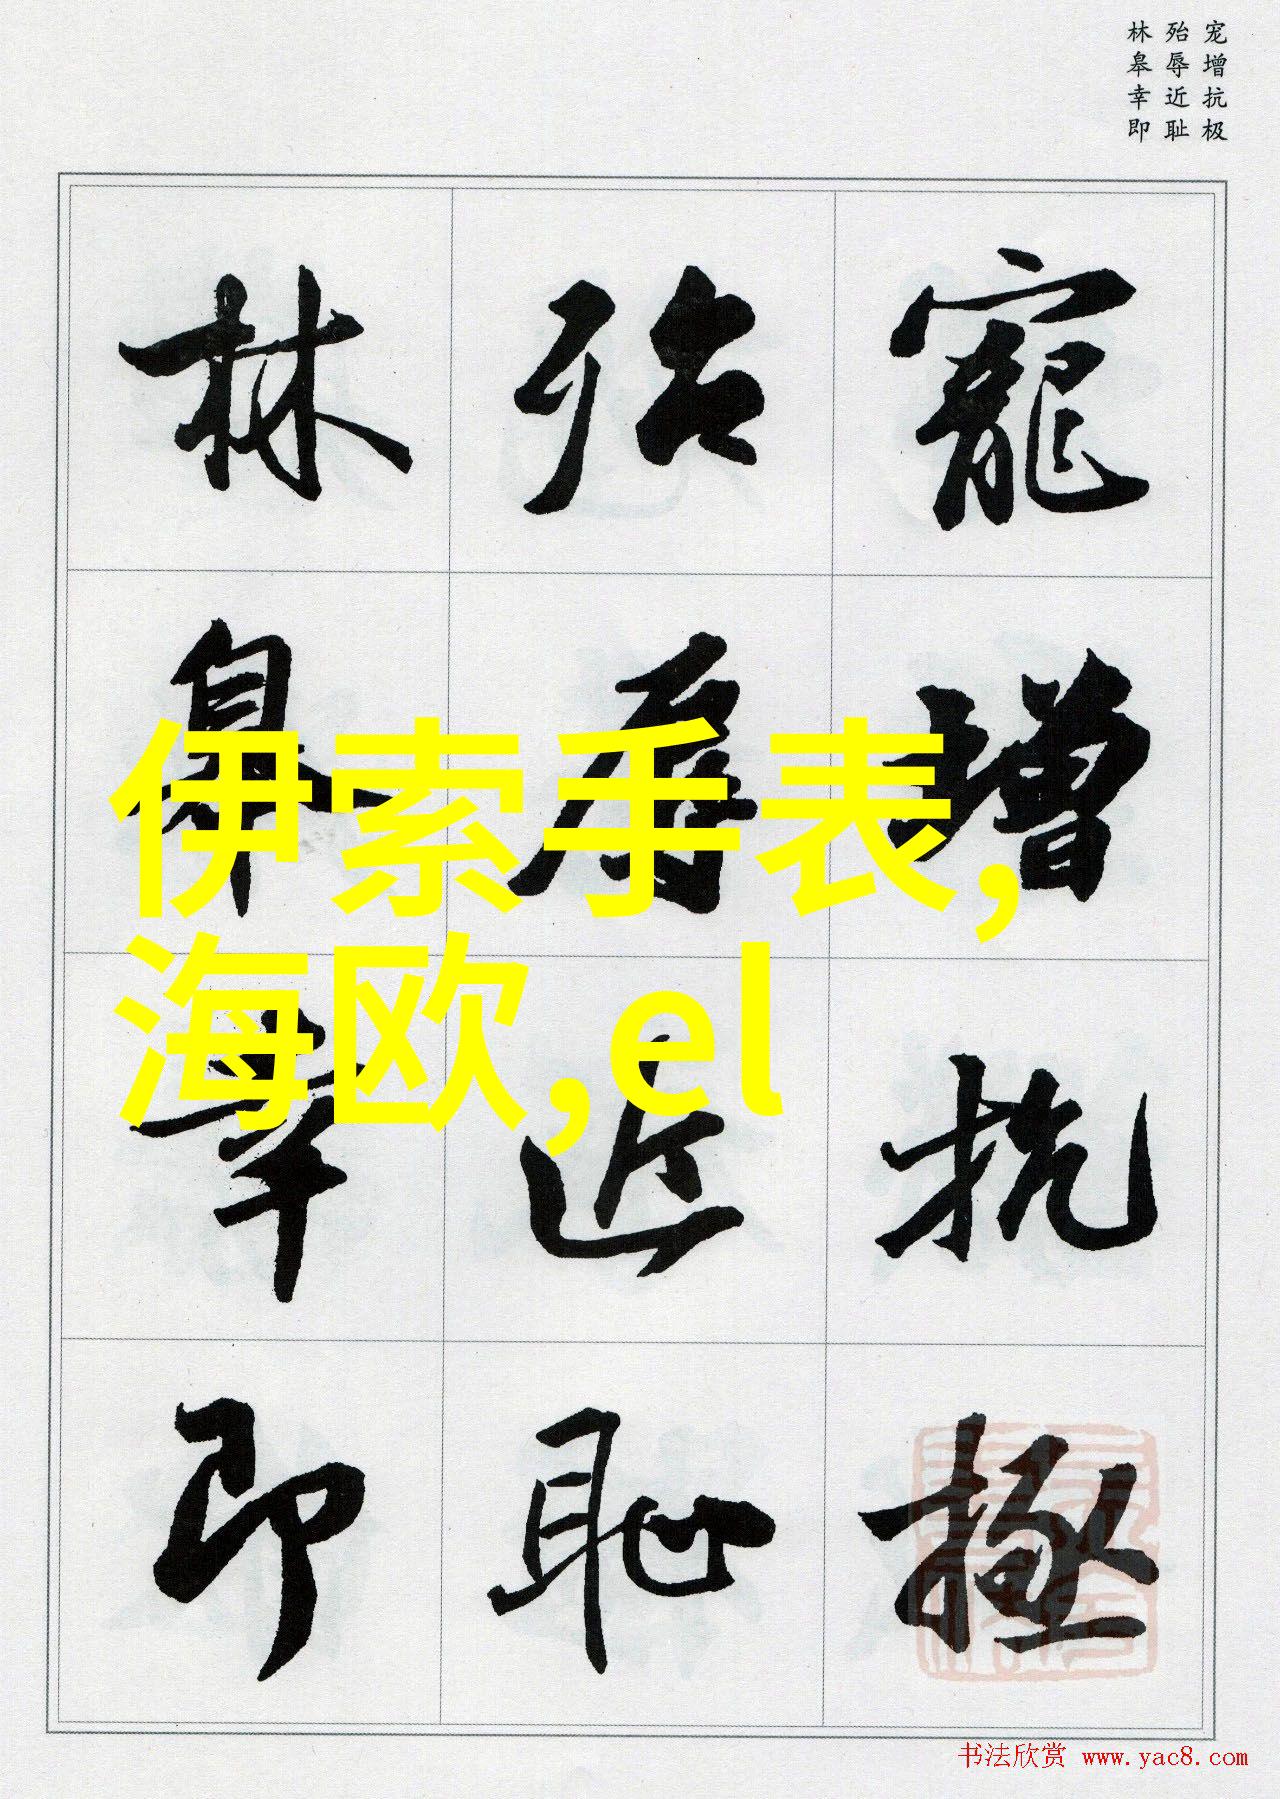 宠增抗极
殆辱近耻
林皋幸即
寵增抗極
殆辱近耻
林皋幸即
伊索手表,
海欧,el
书法欣赏 www.yac8.com